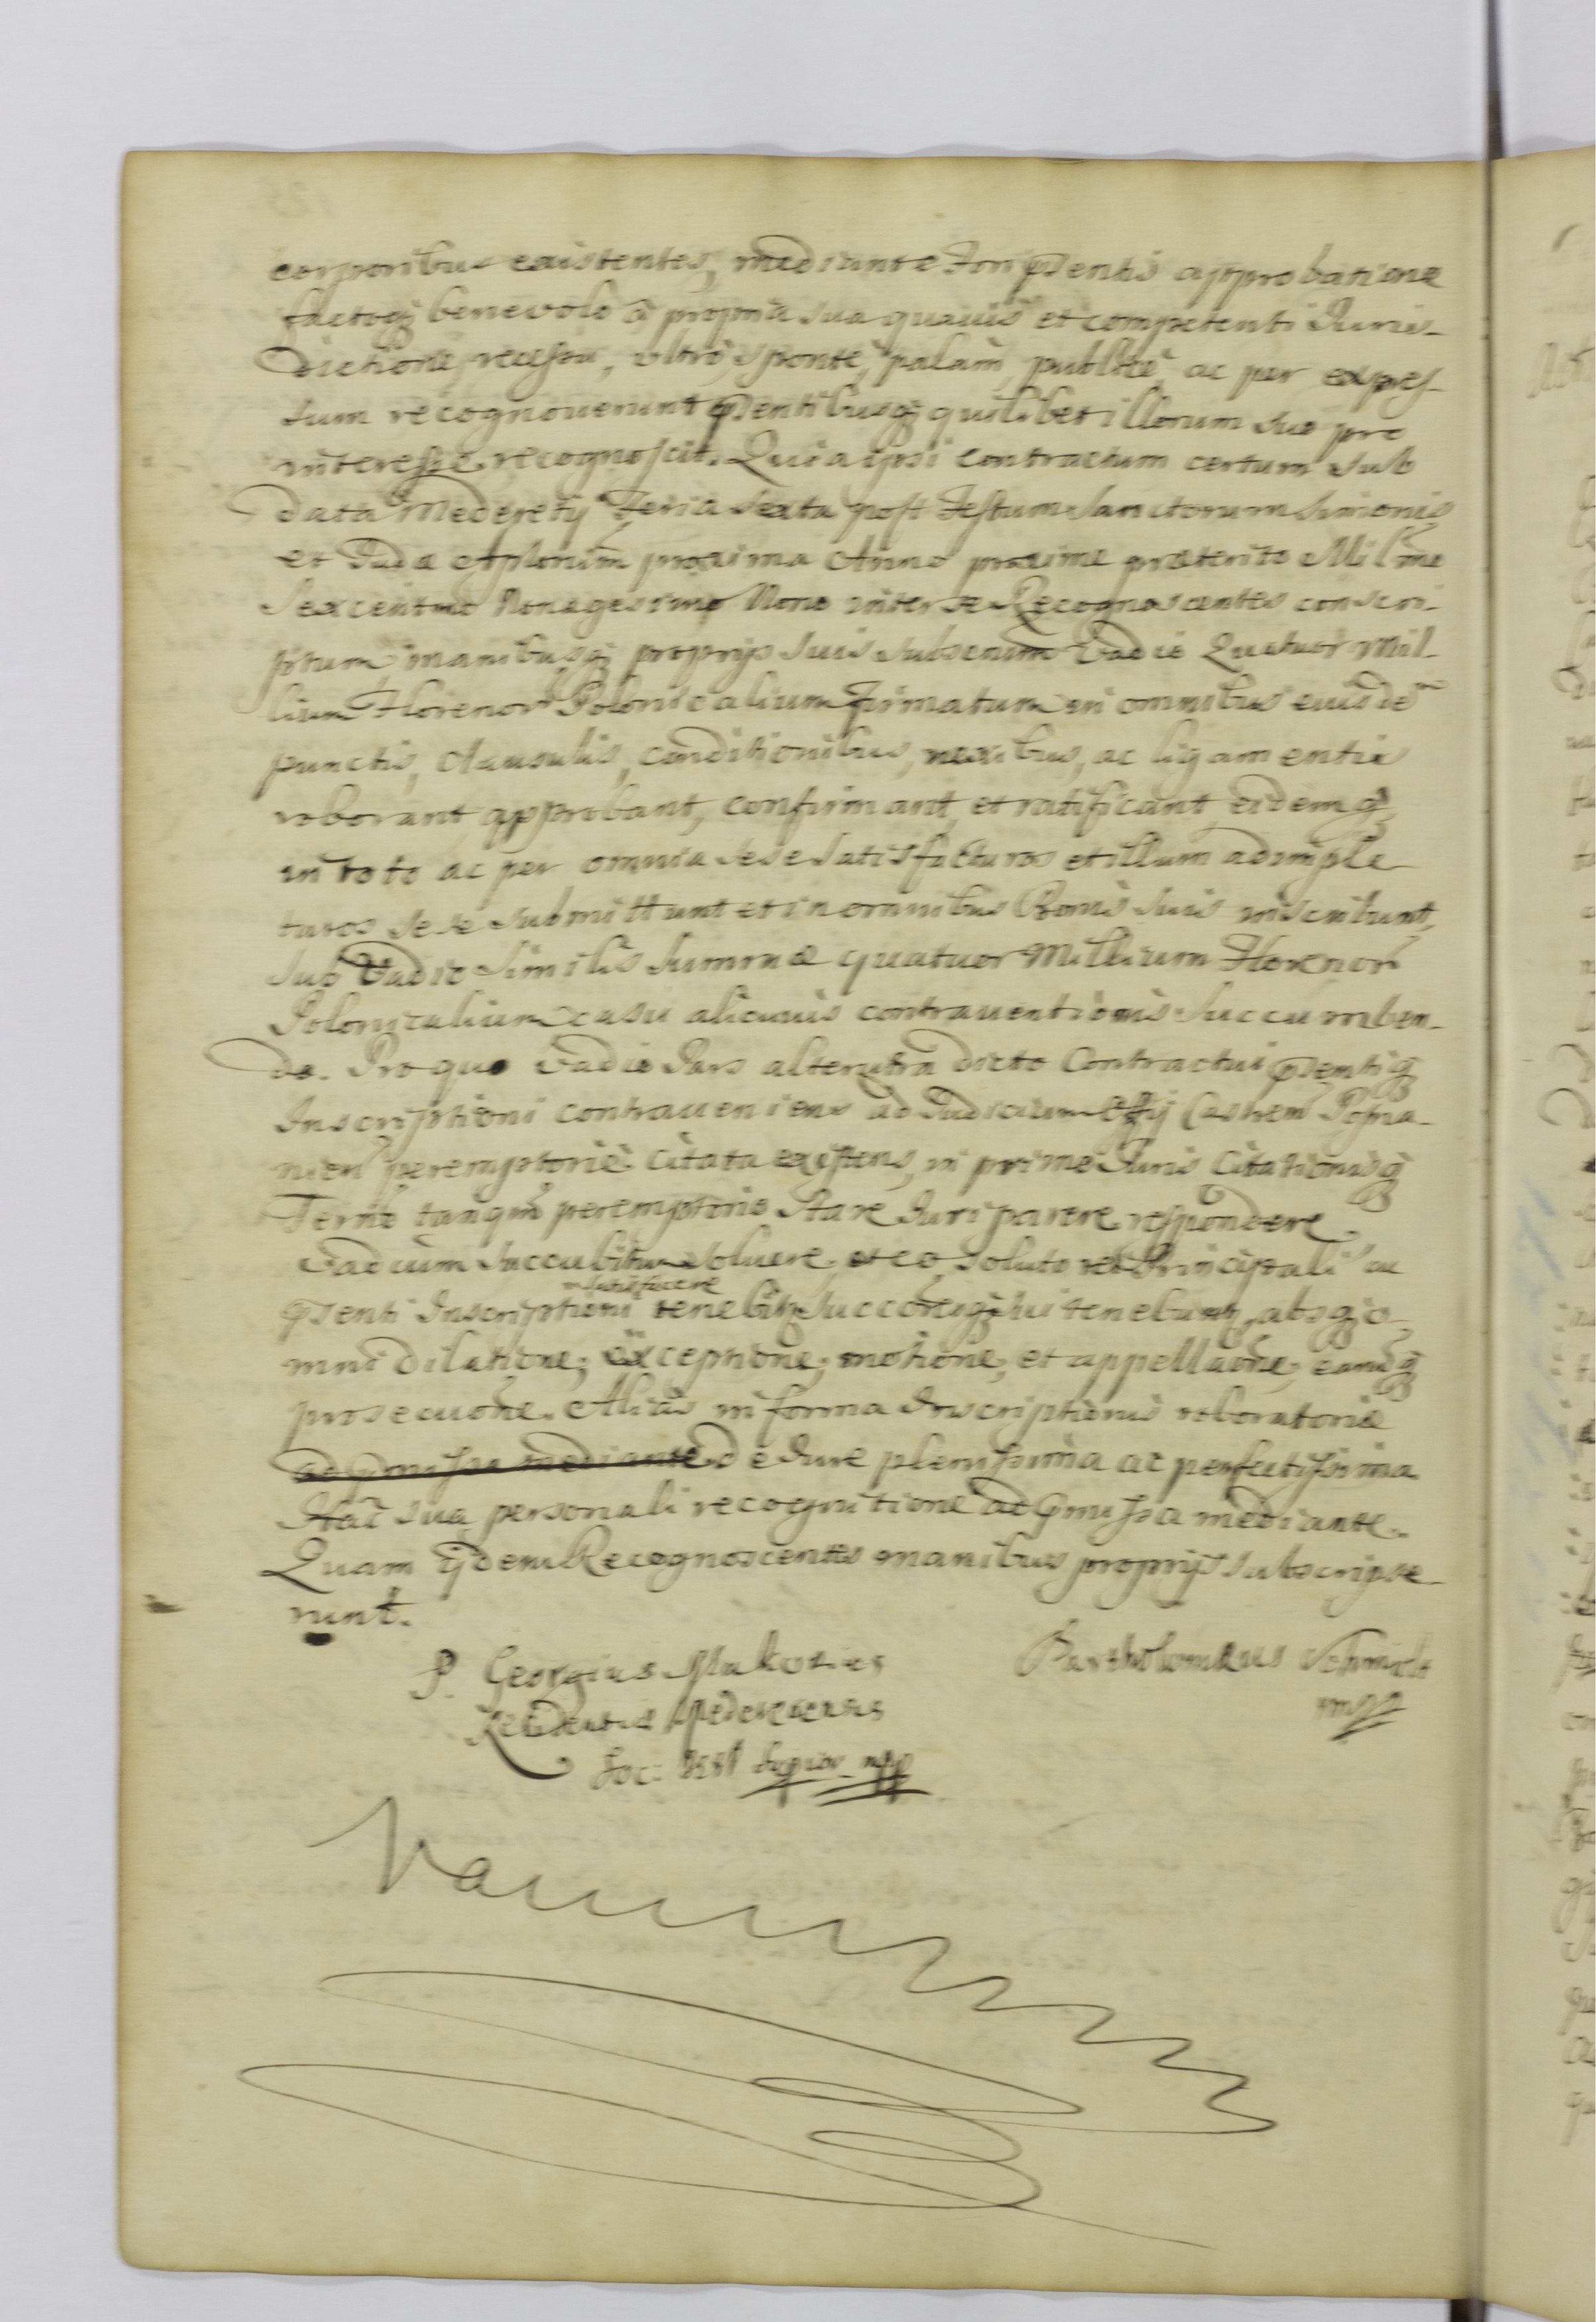 corporibus existentes, mediante Fori psentis approbatione
factoq; benevolo à propria sua quavis et competenti Juris-
dictione recessu, ultrò, spontè, palàm, publicè ac per expres-
sum recognoverunt psentibusq; quilibet illorum suo pro
interesse recognoscit. Quia ipsi contractum certum sub
data Mederecij Feria Sexta post Festum Sanctorum Simonis
et Judæ Aplorum proxima Anno proxime præterito Millmo
Sexcentmo Nonagesimo Nono inter se Recognoscentes conscri-
ptum manibusq; proprijs suis subscriptum Vadio Quatuor Mil-
lium Florenor Polonicalium firmatum in omnibus eiusdē
punctis, clausulis, conditionibus, nexibus, ac ligamentis
roborant, approbant, confirmant, et ratificant, eidemq;
in toto ac per omnia sese satisfacturos et illum adimple
turos sese submittunt et in omnibus Bonis suis inscribunt,
sub Vadio similis summæ quatuor Millium Florenor
Polonicalium casu alicuius contraventionis succumben-
do. Pro quo Vadio Pars alterutra dicto Contractui psentiq;
Inscriptioni contraveniens ad Judicium Offij Castren Posna-
nien peremptoriè citata existens, in primo Juris Citationisq;
Termo tanqm peremptorio Stare Juri parere respondere
Vadium succubitum solvere, et eo soluto rei Principali ac
satisfacere
psenti Inscriptioni tenebitur Succoresq; sui tenebunt, absq; o-
mni dilatione, exceptione, motione, et appellaone, earumq;
prosecuone. Aliàs in forma Inscriptionis roboratoriæ
ad pmissa mediante de Jure plenissima ac perfectissima
Hac sua personali recognitione ad pmissa mediante.
Quam ijdem Recognoscentes manibus proprijs subscripse
runt.
P. Georgius
Bartholomæus Schmidt
mpp
Residentiæ Mederecensis
Soc: Superior mpp